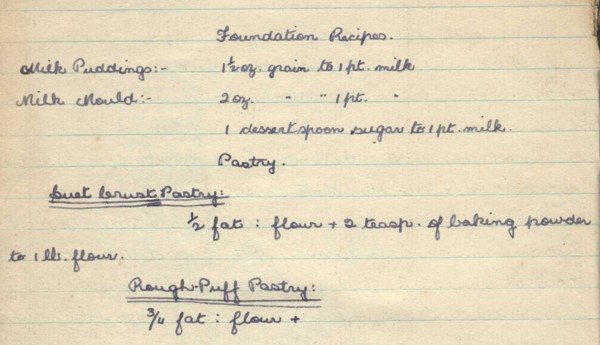 Foundation Recipes.
Milk Puddings:- 1½ oz. grain to 1 pt. milk
Milk Mould:- 2 oz. " " 1 pt. "
1 dessertspoon sugar to 1 pt. milk.
Pastry.
Suet Crust Pastry:
½ fat : flour + 2 teasp. of baking powder
to 1 lb. flour.
Rough-Puff Pastry:
¾ fat : flour +